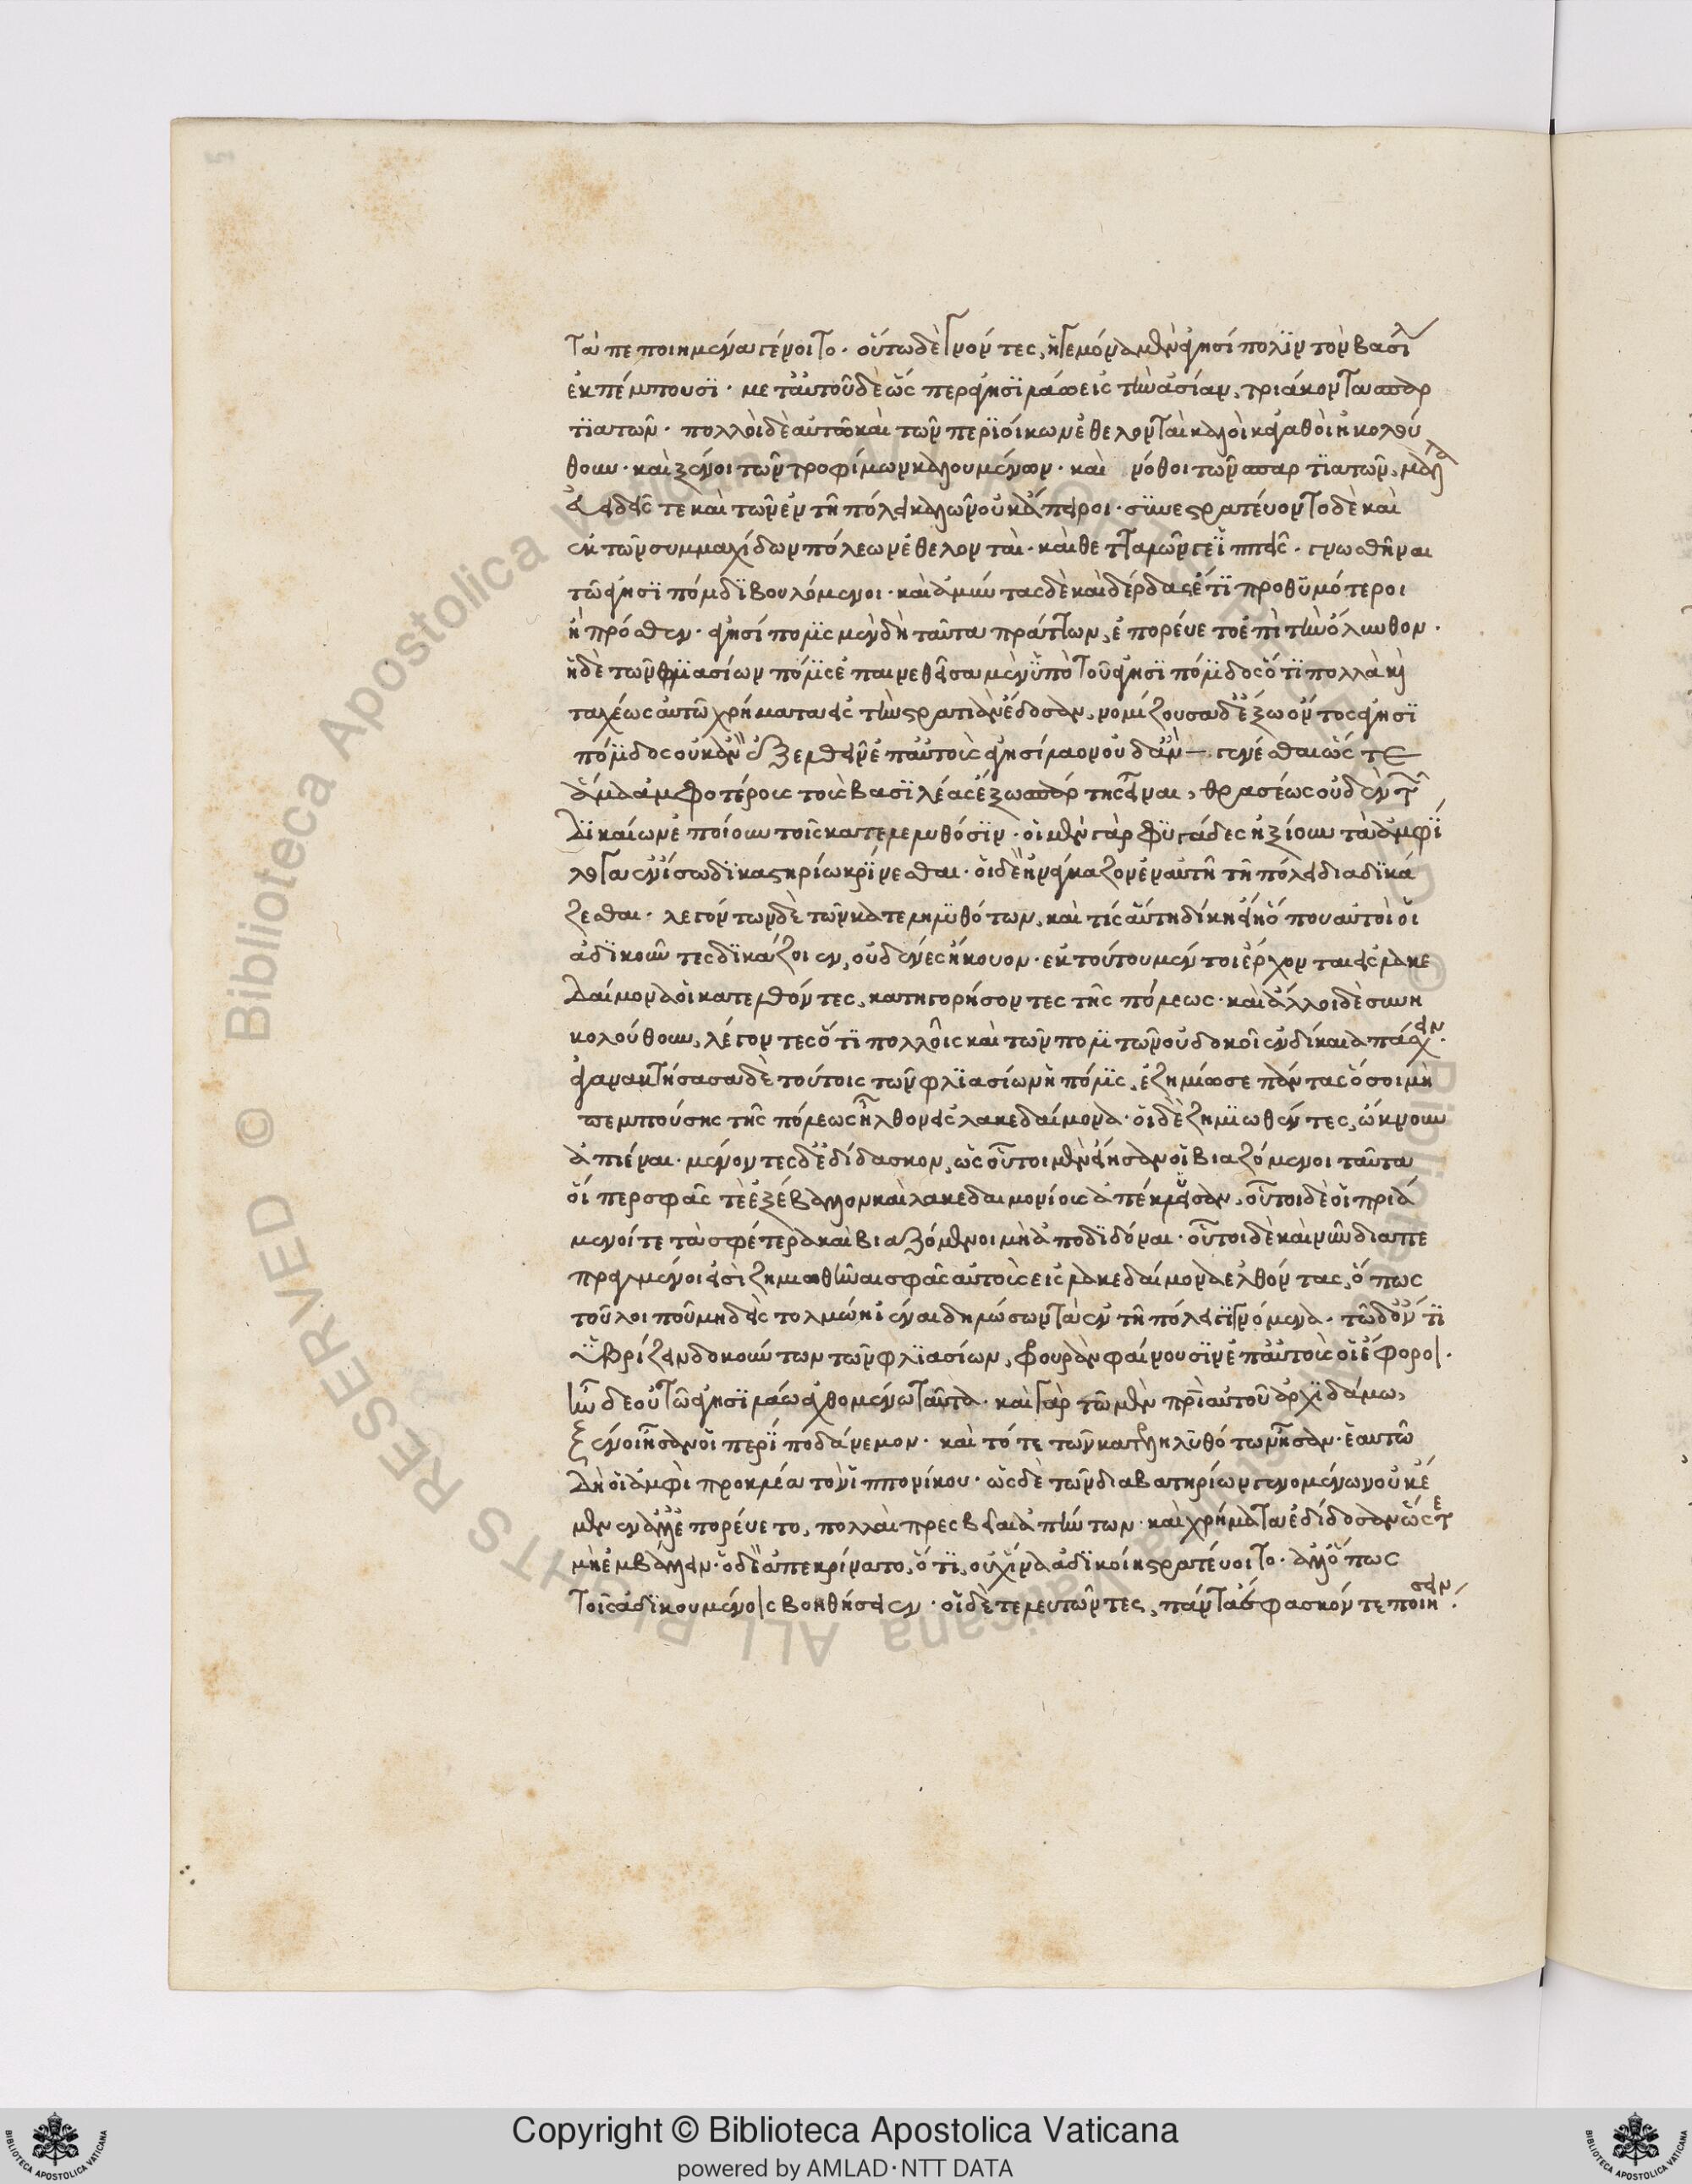 τὰ πεποιημένα γένοιτο. οὕτω δὲ γνόντες, ἡγεμόνα μὲν ἀγησίπολϊν τὸν βασιλ
ἐκπέμπουσϊ. μετ' αὐτοῦ δὲ ὥς περ ἀγησϊλάω εἰς τὴν ἀσίαν, τριάκοντα σπαρ
τϊατῶν. πολλοὶ δὲ αὐτῶ καὶ τῶν περϊοίκων ἐθελονταὶ καλοὶ κἀγαθοὶ ἠκολού
θουν. καὶ ξένοι τῶν τροφίμων καλουμένων. καὶ νόθοι τῶν σπαρτϊατῶν, μάλα
εὐειδεῖς τε καὶ τῶν ἐν τῆ πόλει καλῶν οὐκ ἄπειροι. συνεστρατεύοντο δὲ καὶ
ἐκ τῶν συμμαχίδων πόλεων ἐθελονταὶ. καὶ θετταλῶν γε ἱππεῖς. γνωσθῆναι
τῶ ἀγησϊπόλιδϊ βουλόμενοι. καὶ ἀμύντας δὲ καὶ δέρδας ἔτϊ προθυμότεροι
ἢ πρόσθεν. ἀγησίπολις μὲν δὴ ταῦτα πράττων, ἐπορεύετο ἐπὶ τὴν ὄλυνθον.
ἡ δὲ τῶν φλϊασίων πόλις ἐπαινεθεῖσα μὲν ὑπὸ τοῦ ἀγησϊπόλιδος ὅτϊ πολλὰ καὶ
ταχέως αὐτῶ χρήματα εἰς τὴν στρατιὰν ἔδοσαν, νομίζουσα δ' ἔξω ὄντος ἀγησϊ
πόλιδος οὐκ ἂν ἐξελθεῖν ἐπ' αὐτοὺς ἀγησίλαον οὐδ' ἂν γενέσθαι ὥς τε
ἅμα ἀμφοτέροις τοὺς βασϊλέας ἔξω σπάρτης εἶναι, θρασέως οὐδὲν τ
δϊκαίων ἐποίουν τοῖς κατεληλυθόσϊν. οἱ μὲν γὰρ φϋγάδες ἠξίουν τὰ ἀμφϊ
λογα ἐν ἴσω δϊκαστηρίω κρϊνεσθαι. οἱ δὲ ἠνάγκαζον ἐν αὐτῆ τῆ πόλει διαδϊκά
ζεσθαι. λεγόντων δὲ τῶν κατεληλϋθότων, καὶ τίς αὕτη δίκη εἴη ὅπου αὐτοὶ οἱ
ἀδϊκοῦντες δϊκάζοιεν, οὐδενὲς ἤκουον. ἐκ τούτου μέντοι ἔρχονται εἰς λακε
δαίμονα οἱ κατελθόντες, κατηγορήσοντες τῆς πόλεως. καὶ ἄλλοι δὲ συνη
κολούθουν, λέγοντες ὅτϊ πολλοῖς καὶ τῶν πολιτῶν οὐ δοκοῖεν δίκαια πάσχειν.
ἀγανακτήσασα δὲ τούτοις τῶν φλϊασίων ἡ πόλις, ἐζημίωσε πάντας ὅσοι μὴ
πεμπούσης τῆς πόλεως ἦλθον εἰς λακεδαίμονα. οἱ δὲ ζημϊωθέντες, ὤκνουν
ἀπιέναι. μένοντες δ' ἐδίδασκον, ὡς οὗτοι μὲν εἴησαν οἱ βιαζόμενοι ταῦτα
οἵ περ σφᾶς τε ἐξέβαλλον καὶ λακεδαιμονίους ἀπέκλεισαν, οὗτοι δὲ οἱ πριά
μενοί τε τὰ σφέτερα καὶ βιαζόμενοι μὴ ἀποδϊδόναι. οὗτοι δὲ καὶ νῦν διαπε
πραγμένοι εἰσὶ ζημιωθῆναι σφᾶς αὐτοὺς εἰς λακεδαίμονα ἐλθόντας, ὅπως
τοῦ λοιποῦ μηδεὶς τολμώη ἰέναι δηλώσων τὰ ἐν τῆ πόλει γϊγνόμενα. τῶ δ' ὄντϊ
ὑβρίζειν δοκούντων τῶν φλϊασίων, φουρὰν φαίνουσϊν ἐπ' αὐτοὺς οἱ ἔφοροι.
ἦν δε οὐ τῶ ἀγησϊλάω ἀχθομένω ταῦτα. καὶ γὰρ τῶ μὲν πρϊ αὐτοῦ ἀρχϊδάμω,
ξένοι ἦσαν οἱ περὶ ποδάνεμον. καὶ τότε τῶν κατεληλυθότων ἦσαν. ἑαυτῶ
δὴ οἱ ἀμφὶ προκλέα τὸν ἱππονίκου. ὡς δὲ τῶν διαβατηρίων γενομένων οὐκ ἔ
μελλεν ἀλλ' ἐπορεύετο, πολλαὶ πρεσβεῖαι ἀπήντων. καὶ χρήματα ἐδίδοσαν ὥςτε
μὴ ἐμβάλλειν. ὁ δὲ ἀπεκρίνατο, ὅτϊ, οὐχ ἵνα ἀδϊκοίη στρατεύοιτο. ἀλλ' ὅπως
τοῖς ἀδϊκουμένοις βοηθήσειεν. οἱ δὲ τελευτῶντες, πάντα ἔφασκόν τε ποιήσειν.
Copyright © Biblioteca Apostolica Vaticana
powered by AMLAD·NTT DATA